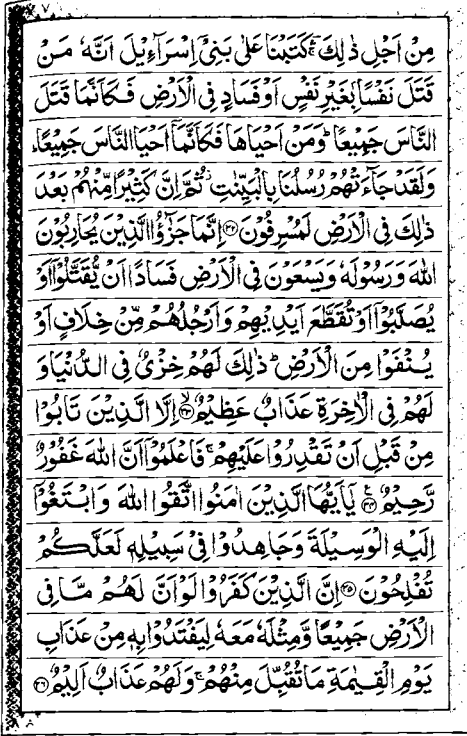 مِنْ اَجْلِ ذٰلِكَ ۛۚ كَتَبْنَا عَلٰى بَنِیْۤ اِسْرَآءِیْلَ اَنَّهٗ مَنْ
قَتَلَ نَفْسًۢا بِغَیْرِ نَفْسٍ اَوْ فَسَادٍ فِی الْاَرْضِ فَكَاَنَّمَا قَتَلَ
النَّاسَ جَمِیْعًا ؕ وَمَنْ اَحْیَاهَا فَكَاَنَّمَاۤ اَحْیَا النَّاسَ جَمِیْعًا ؕ
وَلَقَدْ جَآءَتْهُمْ رُسُلُنَا بِالْبَیِّنٰتِ ؗ ثُمَّ اِنَّ كَثِیْرًا مِّنْهُمْ بَعْدَ
ذٰلِكَ فِی الْاَرْضِ لَمُسْرِفُوْنَ ۝۳۲ اِنَّمَا جَزٰٓؤُا الَّذِیْنَ یُحَارِبُوْنَ
اللّٰهَ وَرَسُوْلَهٗ وَیَسْعَوْنَ فِی الْاَرْضِ فَسَادًا اَنْ یُّقَتَّلُوْۤا اَوْ
یُصَلَّبُوْۤا اَوْ تُقَطَّعَ اَیْدِیْهِمْ وَاَرْجُلُهُمْ مِّنْ خِلَافٍ اَوْ
یُنْفَوْا مِنَ الْاَرْضِ ؕ ذٰلِكَ لَهُمْ خِزْیٌ فِی الدُّنْیَا وَ
لَهُمْ فِی الْاٰخِرَةِ عَذَابٌ عَظِیْمٌ ۝۳۳ۙ اِلَّا الَّذِیْنَ تَابُوْا
مِنْ قَبْلِ اَنْ تَقْدِرُوْا عَلَیْهِمْ ۚ فَاعْلَمُوْۤا اَنَّ اللّٰهَ غَفُوْرٌ
رَّحِیْمٌ ۝۳۴ یٰۤاَیُّهَا الَّذِیْنَ اٰمَنُوا اتَّقُوا اللّٰهَ وَابْتَغُوْۤا
اِلَیْهِ الْوَسِیْلَةَ وَجَاهِدُوْا فِیْ سَبِیْلِهٖ لَعَلَّكُمْ
تُفْلِحُوْنَ ۝۳۵ اِنَّ الَّذِیْنَ كَفَرُوْا لَوْ اَنَّ لَهُمْ مَّا فِی
الْاَرْضِ جَمِیْعًا وَّمِثْلَهٗ مَعَهٗ لِیَفْتَدُوْا بِهٖ مِنْ عَذَابِ
یَوْمِ الْقِیٰمَةِ مَا تُقُبِّلَ مِنْهُمْ ۚ وَلَهُمْ عَذَابٌ اَلِیْمٌ ۝۳۶